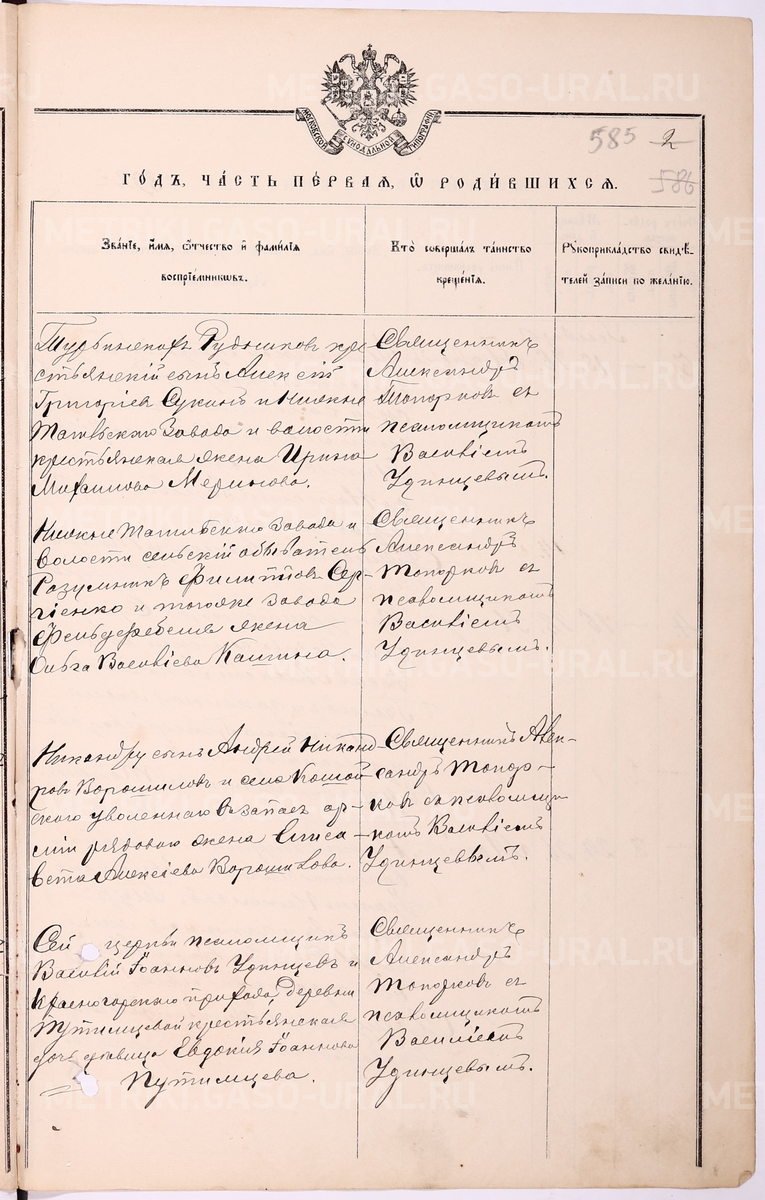 МОСКОВСКОЙ СѴНОДАЛЬНОЙ ТИПОГРАФІИ
585 2
586
ГО́ДЪ, ЧА́СТЬ ПЕ́РВАЯ, Ѿ РОДИ́ВШИХСЯ.
Зва́нїе, и́мя, ѻ́тчество и҆ фами́лїя
воспрїе́мникѡвъ.
Кто̀ соверша́лъ та́инство
креще́нїя.
Рꙋкоприкла́дство свидѣ́-
телей за́писи по жела́нїю.
Рудниковъ кре
стьянскій сынъ Алексѣй
Григоріевъ Сукинъ и Нижне
Тагильскаго Завода и волости
крестьянская жена Ирина
Михаилова Меринова.
Священникъ
Александръ
Топорковъ съ
псаломщикомъ
Василіемъ
Удинцевымъ.
Нижне Тагильскаго Завода и
волости сельскій обыватель
Разумникъ Филипповъ Сер-
гіенко и тогоже завода
Фельдфебеля жена
Ольга Василіева Кашина.
Священникъ
Александръ
Топорковъ съ
псаломщикомъ
Василіемъ
Удинцевымъ.
сынъ Андрей Никанд
ровъ Ворошиловъ и села
ского уволеннаго въ запасъ ар-
міи рядоваго жена Елиса-
вета Алексіева Ворошилова.
Священникъ Алек-
сандръ Топор-
ковъ съ псаломщи-
комъ Василіемъ
Удинцевымъ.
Сей церкви псаломщикъ
Василій Іоанновъ Удинцевъ и
Красногорскаго прихода, деревни
Путилцевой крестьянская
дочь дѣвица Евдокія Іоаннова
Путилцева.
Священникъ
Александръ
Топорковъ съ
псаломщикомъ
Василіемъ
Удинцевымъ.
METRIKI.GASO-URAL.RU